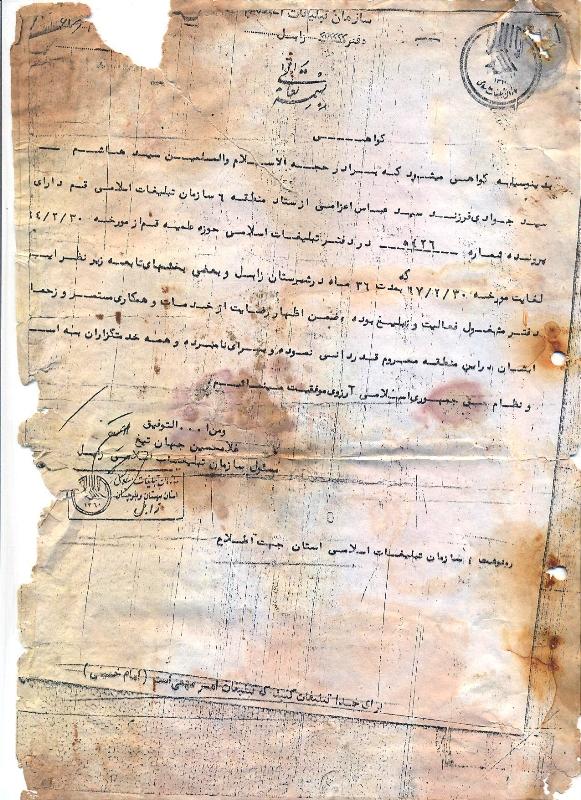 سازمان تبلیغات
دفتر زابل
بسمه تعالی
گواهــــی
بدینوسیله گواهی میشود که برادر حجه الاسلام والمسلمین سید هاشم
سید جوادی فرزند سید عباس اعزامی از ستاد منطقه ۶ سازمان تبلیغات اسلامی قم دارای
پرونده شماره ۵۴۲۶ در دفتر تبلیغات اسلامی حوزه علمیه قم از مورخه ۶۴/۲/۳۰
لغایت مورخه ۶۷/۲/۳۰ که بمدت ۳۶ ماه در شهرستان زابل و بعضی بخشهای تابعه زیر نظر این
دفتر مشغول فعالیت و تبلیغ بوده ، ضمن اظهار رضایت از خدمات و همکاری مستمر و زحمات
ایشان در این منطقه محروم قدردانی نموده و برای نامبرده و همه خدمتگزاران به
و نظام جمهوری اسلامی آرزوی موفقیت مینمائیم.
ومن ا... التوفیق
غلامحسین جهان تیغ
مسئول سازمان تبلیغات اسلامی زابل
سازمان تبلیغات اسلامی
استان سیستان و بلوچستان
زابل
۱۳۶۰
رونوشت : سازمان تبلیغات اسلامی استان جهت اطلاع
برای خدا تبلیغات کنید که تبلیغات امر مهمی است (امام خمینی)